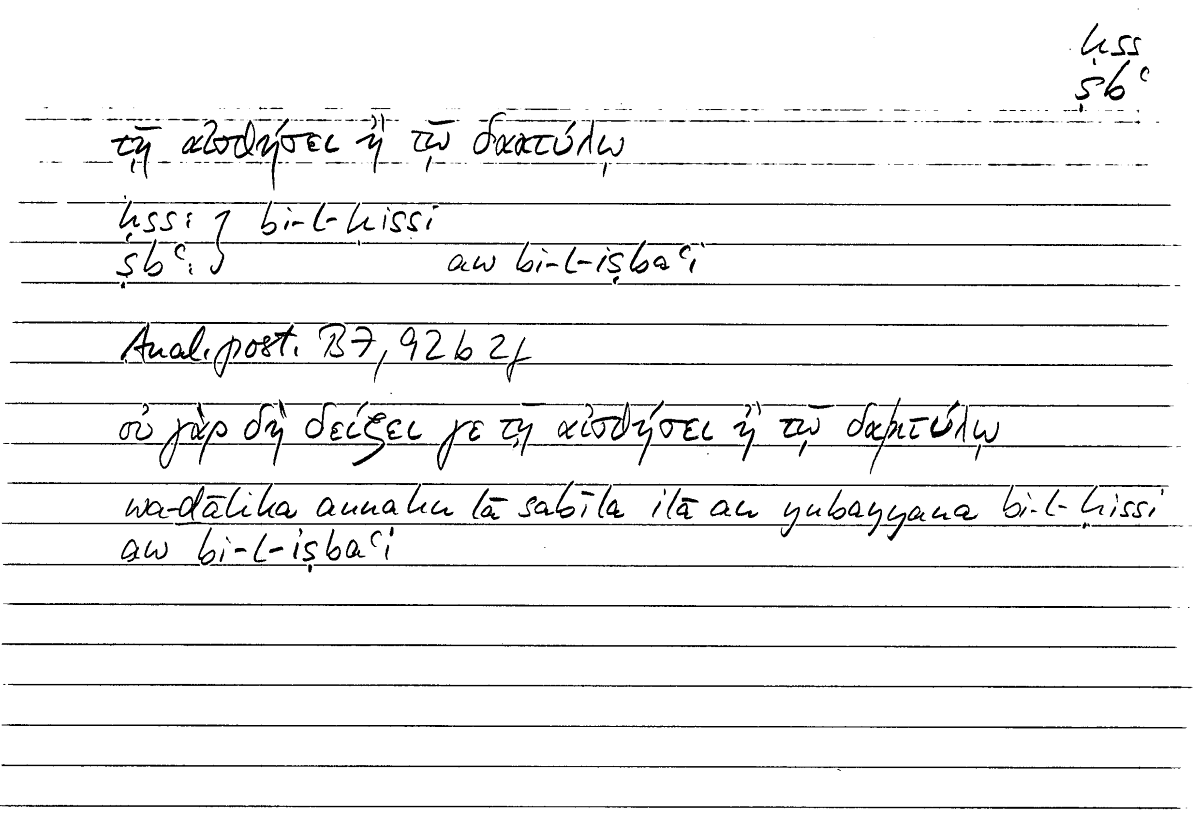 ḥss
ṣbʿ
τῇ αἰσθήσει ἢ τῷ δακτύλῳ
ḥss: } bi-l-ḥissi
ṣbʿ: aw bi-l-iṣbaʿi
Anal. post. B7, 92b2f
οὐ γὰρ δὴ δείξει γε τῇ αἰσθήσει ἢ τῷ δακτύλῳ
wa-ḏālika annahu lā sabīla ilā an yubayyana bi-l-ḥissi
aw bi-l-iṣbaʿi